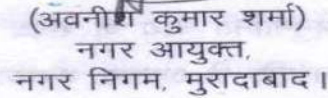 (अवनीश कुमार शर्मा)
नगर आयुक्त,
नगर निगम, मुरादाबाद।